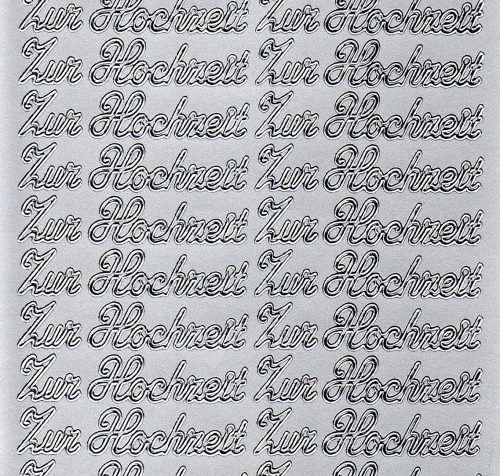 Zur Hochzeit Zur Hochzeit
Zur Hochzeit Zur Hochzeit
Zur Hochzeit Zur Hochzeit
Zur Hochzeit Zur Hochzeit
Zur Hochzeit Zur Hochzeit
Zur Hochzeit Zur Hochzeit
Zur Hochzeit Zur Hochzeit
Zur Hochzeit Zur Hochzeit
Zur Hochzeit Zur Hochzeit
Zur Hochzeit Zur Hochzeit